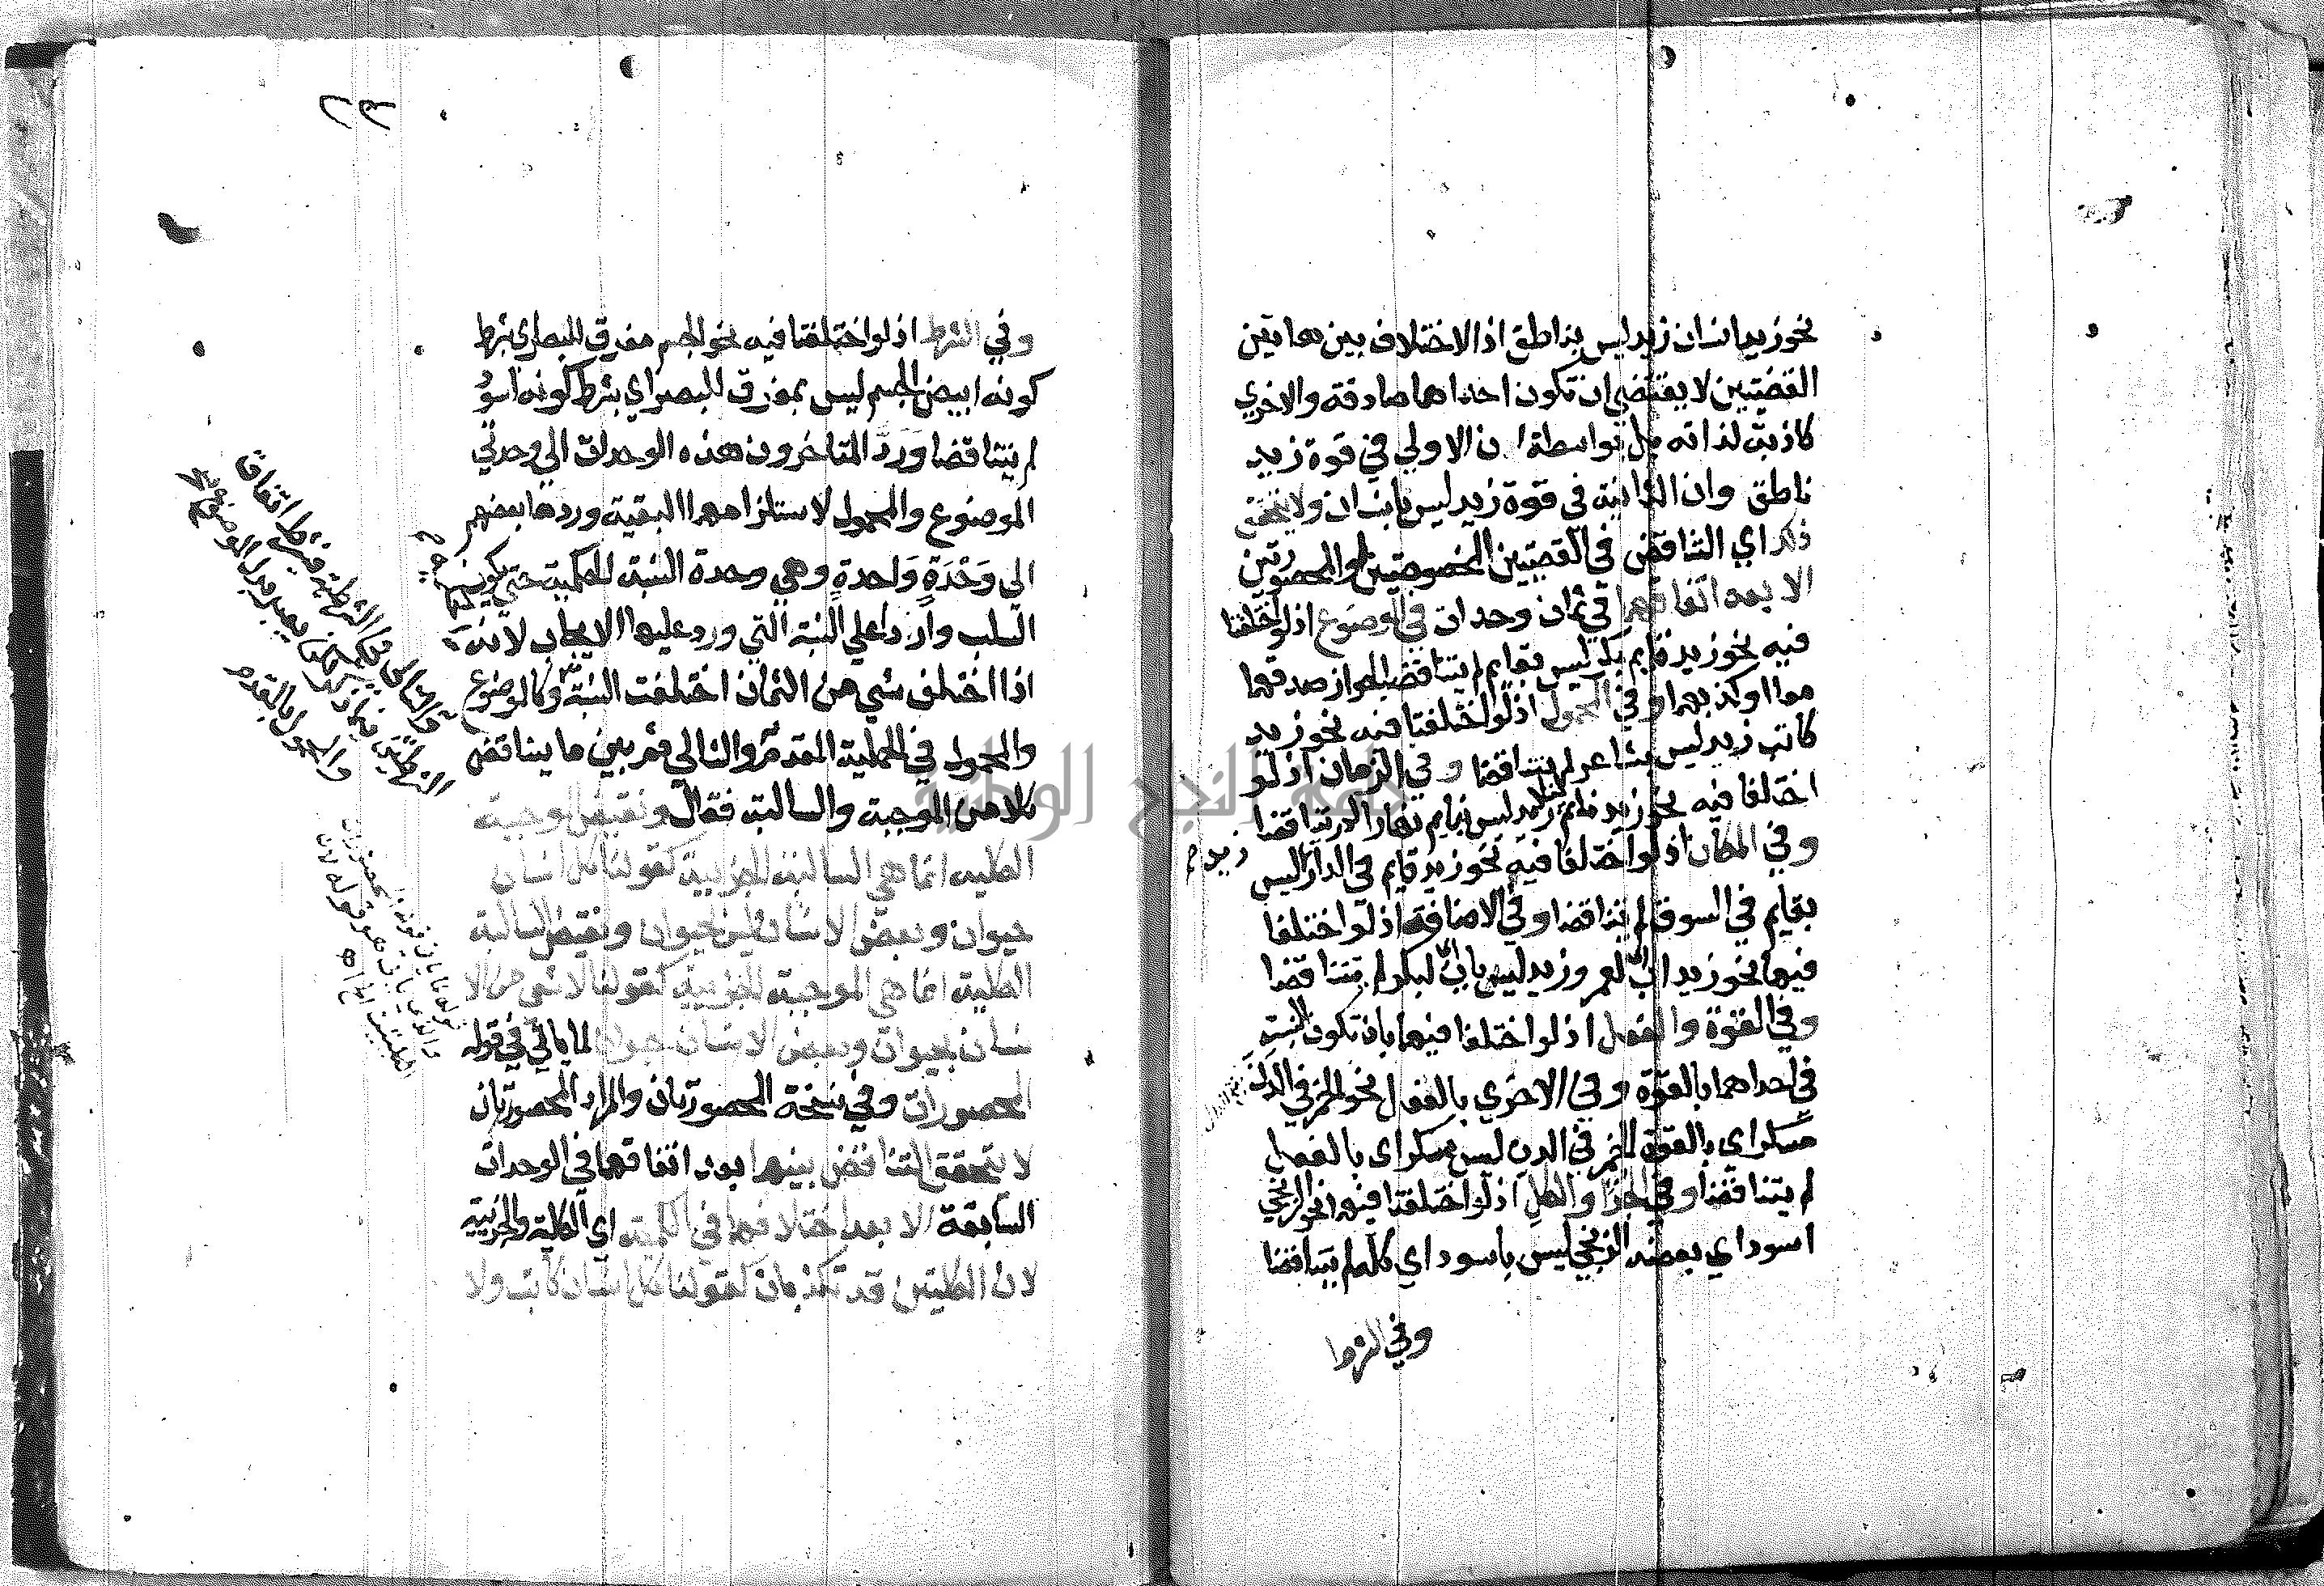 نحو زيد انسان زيد ليس بناطق اذ الاختلاف بين هاتين
القضيتين لا يقتضي ان تكون احداهما صادقة والاخري
كاذبة لذاته بل بواسطة ان الاولي في قوة زيد
ناطق وان الثانية في قوة زيد ليس بانسان ولا يتحقق
ذلك اي التناقض في القضيتين المخصوصتين او المحصورتين
الا بعد اتفاقهما في ثمان وحدات في الموضوع اذ لو اختلفتا
فيه نحو زيد قايم بكر ليس بقايم لم يتناقضا لجواز صدقهما
معا او كذبهما وفي المحمول اذ لو اختلفتا فيه نحو زيد
كاتب زيد ليس بشاعر لم يتناقضا وفي الزمان اذ لو
اختلفا فيه نحو زيد نائم ليلا زيد ليس بنايم نهارا لم يتناقضا
وفي المكان اذ لو اختلفا فيه نحو زيد قايم في الدار ليس
زيد
بقايم في السوق لم يتناقضا وفي الاضافة اذ لو اختلفا
فيها نحو زيد اب لعمر وزيد ليس باب لبكر لم يتناقضا
وفي القوة والفعل اذ لو اختلفا فيهما بان تكون النسبة
في احداهما بالقوة وفي الاخري بالفعل نحو الخمر في الدن
مسكر اي بالقوة الخمر في الدن ليس بمسكر اي بالفعل
لم يتناقضا وفي الجزا والكل اذ لو اختلفتا فيهما نحو الزنجي
اسود اي بعضه الزنجي ليس باسود اي كله لم يتناقضا
وفي الشرط
٢٣
وفي الشرط اذ لو اختلفتا فيه نحو الجسم مفرق للبصر اي بشرط
كونه ابيض الجسم ليس بمفرق للبصر اي بشرط كونه اسود
لم يتناقضا ورد المتاخرون هذه الوحدات الي وحدتي
الموضوع والمحمول لاستلزامهما البقية وردها بعضهم
الي وحدة واحدة وهي وحدة النسبة الحكمية حتي يكون
السلب واردا علي النسبة التي ورد عليها الايجاب لانه
اذا اختلف شي من الثمان اختلفت النسبة وكالموضوع
والمحمول في الحملية المقدم والتالي ثم بين ما يناقض
كلا من الموجبة والسالبة فقال ونقيض الموجبة
الكلية انما هي السالبة الجزيية كقولنا كل انسان
حيوان وبعض الانسان ليس بحيوان ونقيض السالبة
الكلية انما هي الموجبة الجزيية كقولنا لا شي من الا
نسان بحيوان وبعض الانسان حيوان لما ياتي في قوله
المحصورات وفي نسخة المحصورتان والمراد المحصورتان
لا يتحقق التناقض بينهما بعد اتفاقهما في الوحدات
السابقة الا بعد اختلافهما في الكمية اي الكلية والجزئية
لان الكليتين قد تكذبان كقولنا كل انسان كاتب ولا